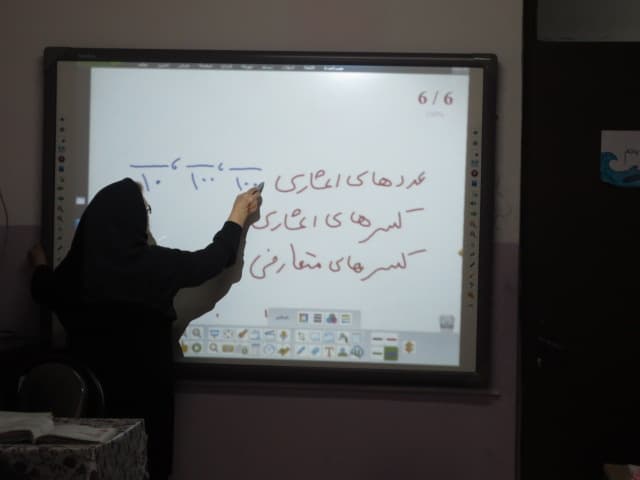 6 / 6
عددهای اعشاری ۱۰۰۰ ، ۱۰۰ ، ۱۰
کسرهای اعشاری
کسرهای متعارفی